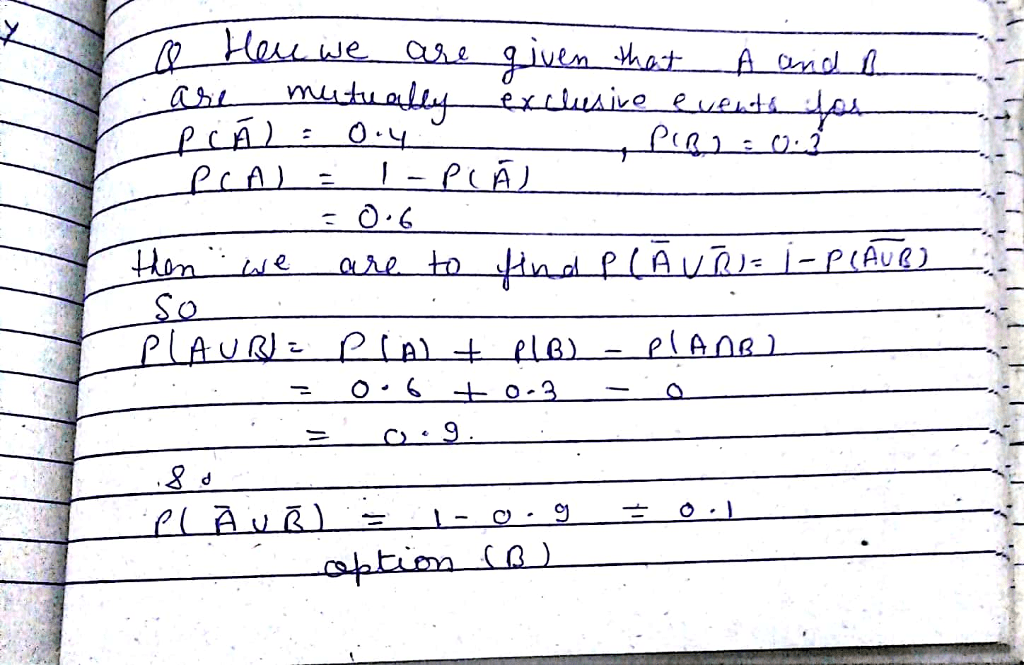 Q Here we are given that A and B
are mutually exclusive events for
P(Ā) = 0.4 , P(B) = 0.3
P(A) = 1 - P(Ā)
= 0.6
then we are to find P(Ā ∪ B̅) = 1 - P(A̅∪̅B̅)
So
P(A∪B) = P(A) + P(B) - P(A∩B)
= 0.6 + 0.3 - 0
= 0.9.
So
P(Ā ∪ B̅) = 1 - 0.9 = 0.1
option (B)